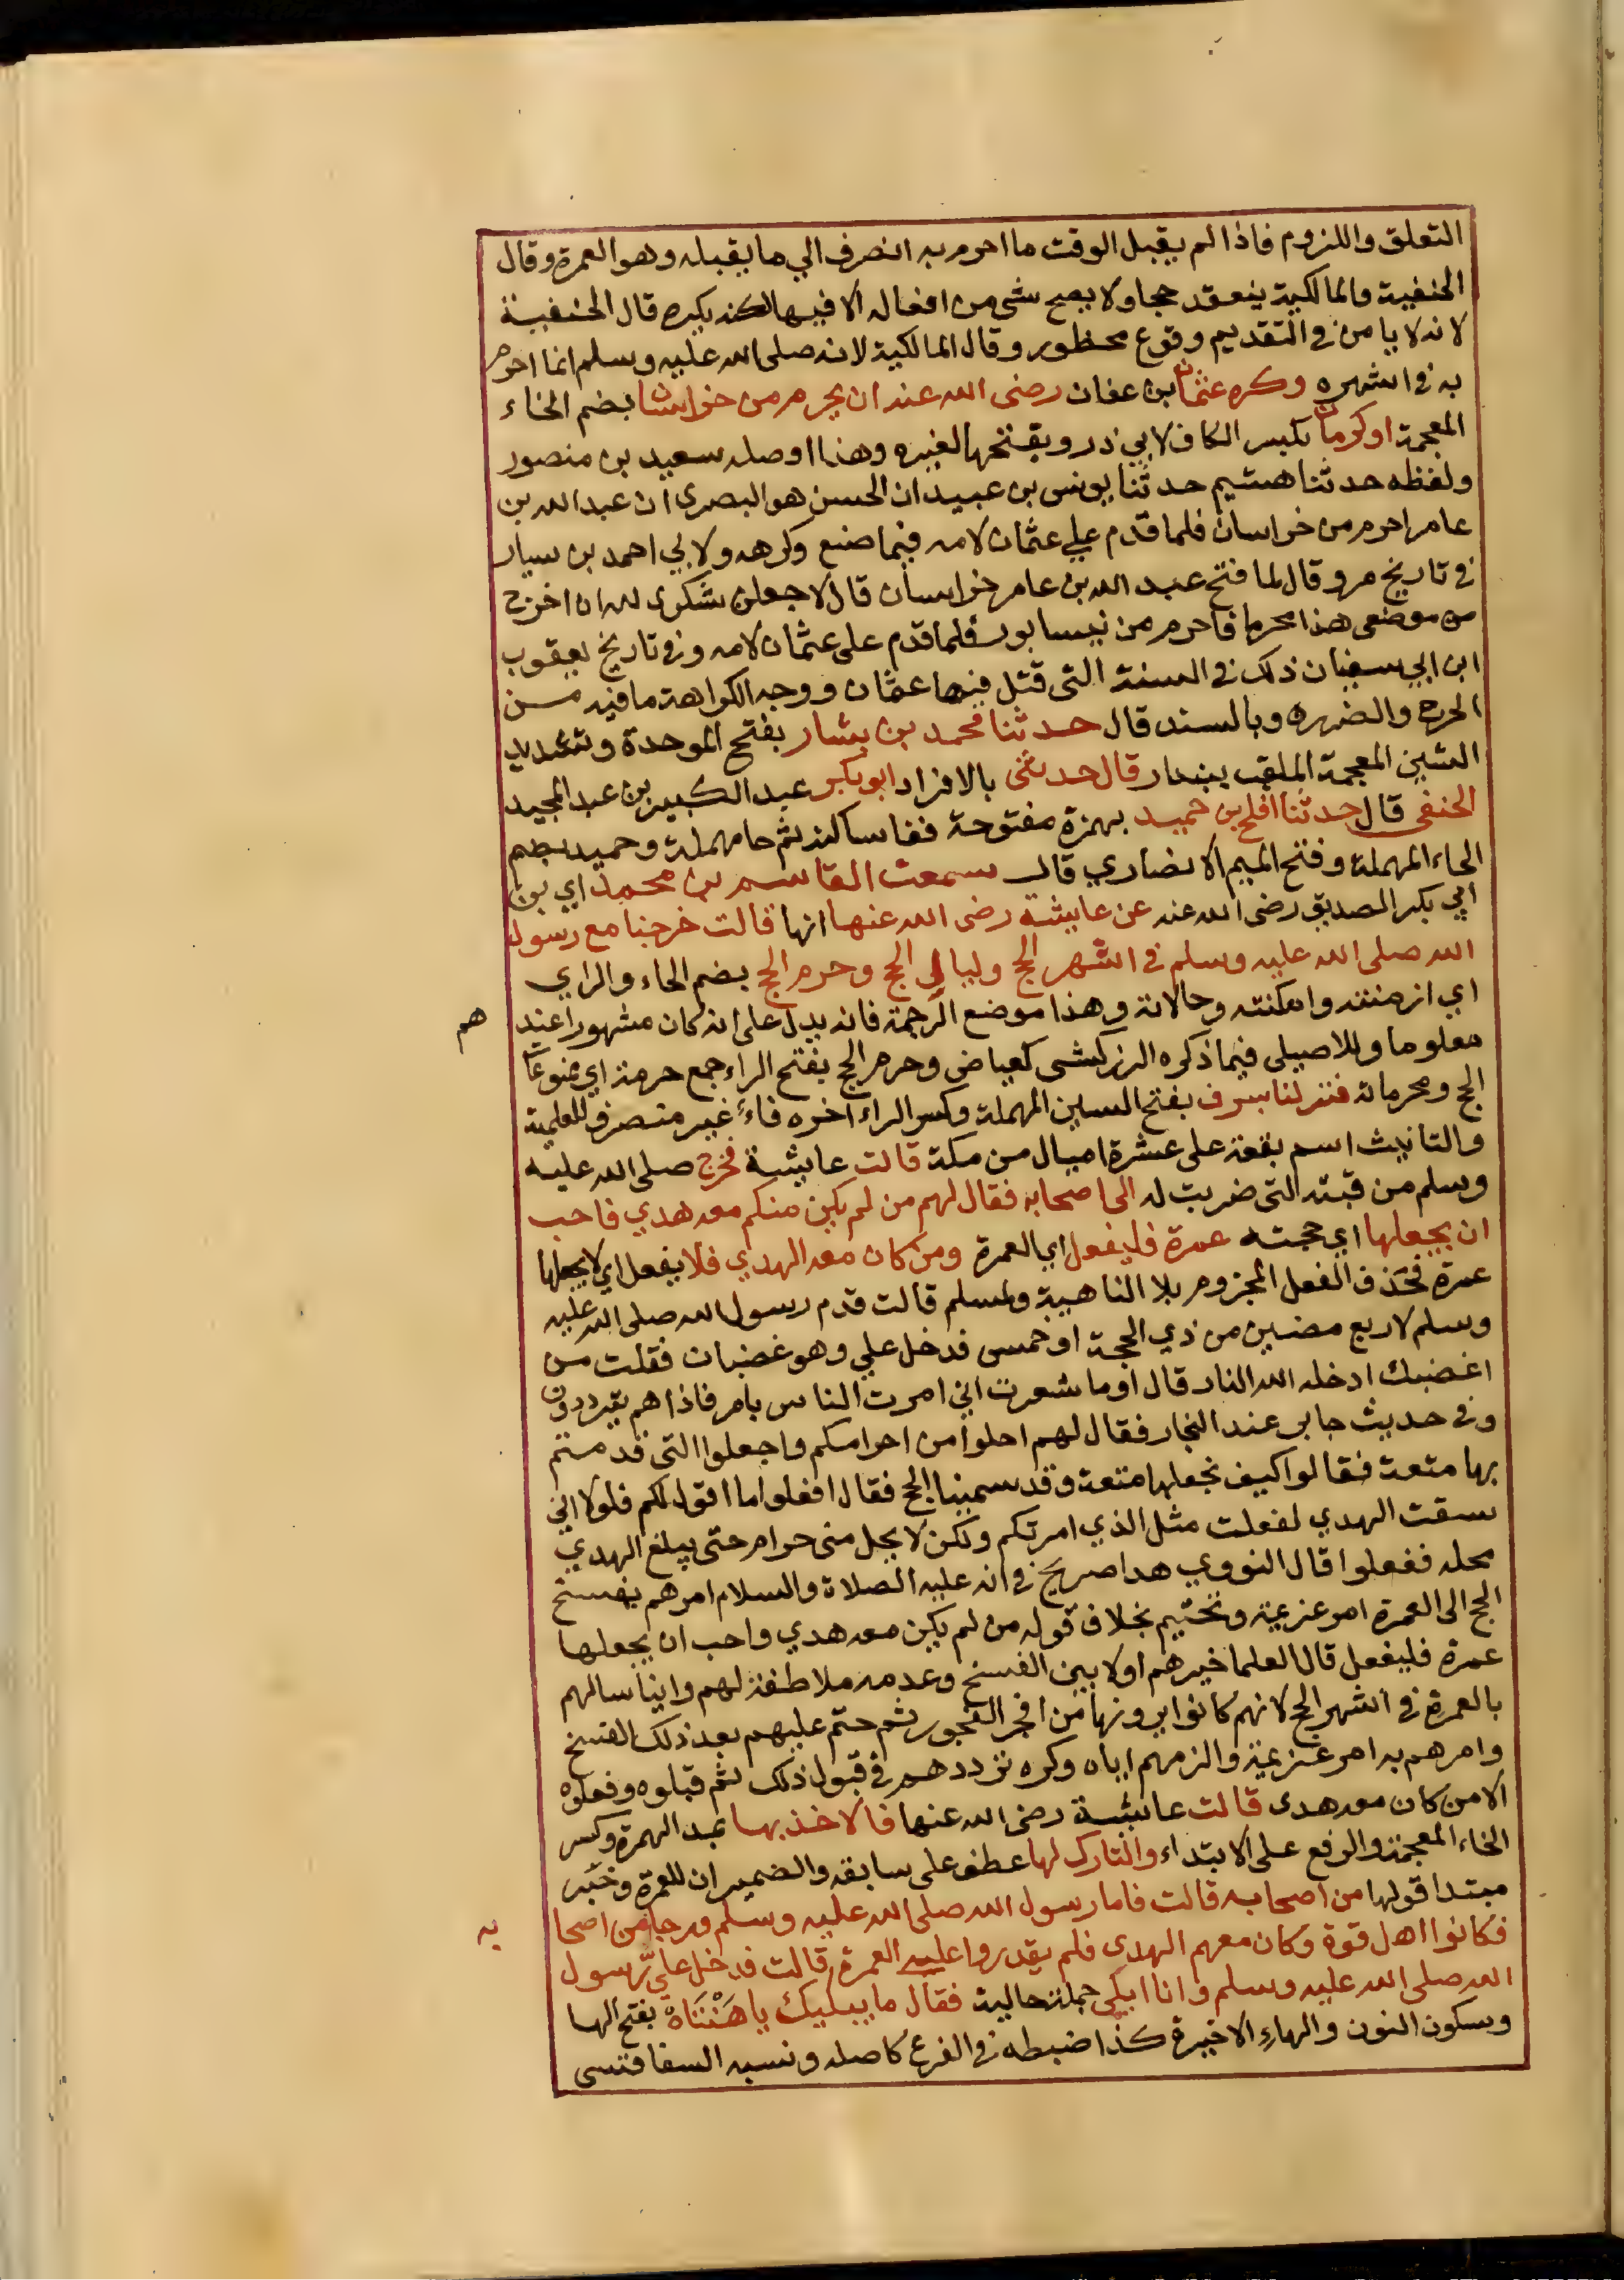 التعلق واللزوم فاذا لم يقبل الوقت ما احرم به انصرف الي ما يقبله وهو العمرة وقال
الحنفية والمالكية ينعقد حجا ولا يصح شي من افعاله الا فيها لكنه يكره قال الحنفية
لانه لا يامن في التقديم وقوع محظور وقال المالكية لانه صلى الله عليه وسلم انما احرم
به في اشهره وكره عثمان بن عفان رضى الله عنه ان يحرم من خراسان بضم الخاء
المعجمة او كرمان بكسر الكاف لابي ذر وبفتحها لغيره وهذا اوصله سعيد بن منصور
ولفظه حدثنا هشيم حدثنا يونس بن عبيد ان الحسن هو البصرى ان عبد الله بن
عامر احرم من خراسان فلما قدم علي عثمان لامه فيما صنع وكرهه ولابي احمد بن سيار
في تاريخ مرو قال لما فتح عبد الله بن عامر خراسان قال لاجعلن شكرى لله ان اخرج
من موضعى هذا محرما فاحرم من نيسابور فلما قدم على عثمان لامه وفي تاريخ يعقوب
ابن ابي سفيان ذلك في السنة التى قتل فيها عثمان ووجه الكراهة ما فيه من
الحرج والضرره وبالسند قال حدثنا محمد بن بشار بفتح الموحدة وتشديد
الشين المعجمة الملقب ببندار قال حدثنى بالافراد ابو بكر عبد الكبير بن عبد المجيد
الحنفى قال حدثنا افلح بن حميد بهمزة مفتوحة ففا ساكنة ثم حا مهملة وحميد بضم
الحاء المهملة وفتح الميم الانصاري قال سمعت القاسم بن محمد اي بن
ابي بكر الصديق رضى الله عنه عن عايشة رضى الله عنها انها قالت خرجنا مع رسول
الله صلى الله عليه وسلم في اشهر الحج وليالي الحج وحرم الحج بضم الحاء والراي
اي ازمنته وامكنته وحالاته وهذا موضع الترجمة فانه يدل على انه كان مشهورا عند هم
معلوما وللاصيلى فيما ذكره الزركشى كعياض وحرم الحج بفتح الراء جمع حرمة اي ممنوعات
الحج ومحرماته فنزلنا بسرف بفتح السين المهملة وكسر الراء اخره فاء غير متصرف للعلمية
والتانيث اسم بقعة على عشرة اميال من مكة قالت عايشة فخرج صلى الله عليه
وسلم من قبته التى ضربت له الى اصحابه فقال لهم من لم يكن منكم معه هدي فاحب
ان يجعلها اي حجته عمرة فليفعل اي العمرة ومن كان معه الهدي فلا يفعل اي لا يجعلها
عمرة فحذف الفعل المجزوم بلا الناهية ولمسلم قالت قدم رسول الله صلى الله عليه
وسلم لاربع مضين من ذي الحجة او خمس فدخل علي وهو غضبان فقلت من
اغضبك ادخله الله النار قال اوما شعرت اني امرت الناس بامر فاذا هم يترددون
وفى حديث جابر عند البخار فقال لهم احلوا من احرامكم واجعلوا التى قدمتم
بها متعة فقالوا كيف نجعلها متعة وقد سمينا الحج فقال افعلوا ما اقول لكم فلولا اني
سقت الهدي لفعلت مثل الذي امرتكم ولكن لا يحل منى حرام حتى يبلغ الهدي
محله ففعلوا قال النووي هدا صريح في انه عليه الصلاة والسلام امرهم بفسخ
الحج الى العمرة امر عزيمة وتحتيم بخلاف قوله من لم يكن معه هدي واحب ان يجعلها
عمرة فليفعل قال العلما خيرهم اولا بين الفسخ وعدمه ملاطفة لهم وايناسا لهم
بالعمرة في اشهر الحج لانهم كانوا يرونها من افجر الفجور ثم حتم عليهم بعد ذلك الفسخ
وامرهم به امر عزيمة والزمهم اياه وكره ترددهم في قبول ذلك ثم قبلوه وفعلوه
الا من كان معه هدى قالت عائشة رضى الله عنها فالاخذ بها بمد الهمزة وكسر
الخاء المعجمة والرفع على الابتداء والتارك لها عطف على سابقه والضميران للعمرة وخبر
مبتدا قولها من اصحابه قالت فاما رسول الله صلى الله عليه وسلم ورجال من اصحا به
فكانوا اهل قوة وكان معهم الهدى فلم يقدروا على العمرة قالت فدخل علي رسول
الله صلى الله عليه وسلم وانا ابكى جملة حالية فقال ما يبكيك يا هَنْتَاهْ بفتح الها
وسكون النون والهاءِ الاخيرة كذا ضبطه في الفرع كاصله ونسبه السفاقسى